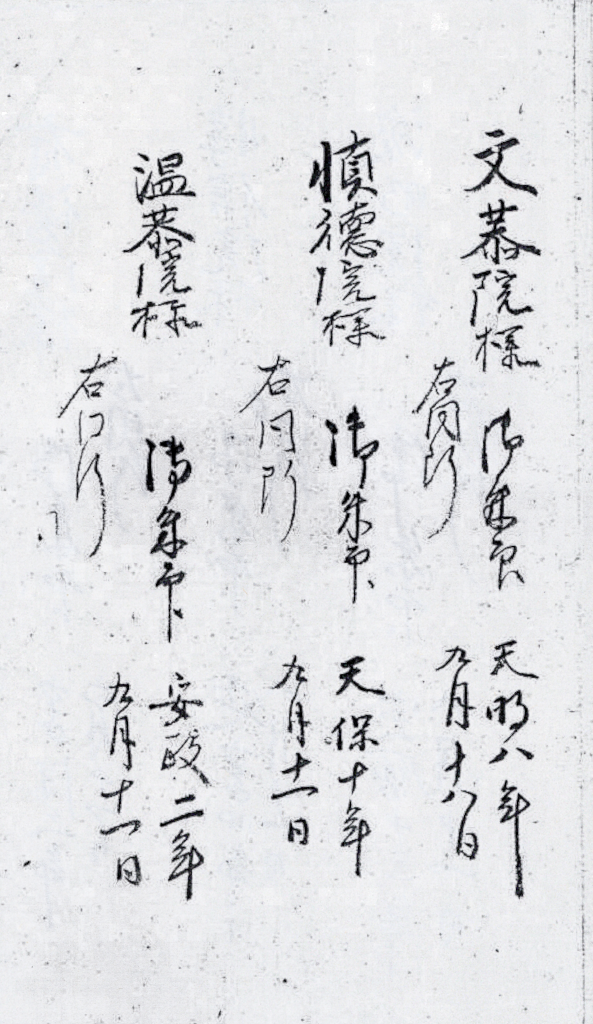 文恭院様 御朱印 天明八年
右同断 九月十八日
慎徳院様 御朱印 天保十年
右同断 九月十一日
温恭院様 御朱印 安政二年
右同断 九月十一日